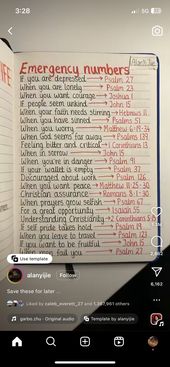 3:28
5G
Emergency numbers
If you are depressed → Psalm 27
When you are lonely → Psalm 23
When you want courage → Joshua 1
If people seem unkind → John 15
When your faith needs stirring → Hebrews 11
When you have sinned → Psalms 51
When you worry → Matthew 6:19-34
When God seems far away → Psalms 139
Feeling bitter and critical → 1 Corinthians 13
When in sorrow → John 15
When you're in danger → Psalm 91
If your wallet is empty → Psalm 37
Discouraged about work → Psalm 126
When you want peace → Matthew 11:25-30
Christian assurance → Romans 8:1-30
When prayers grow selfish → Psalm 67
For a great opportunity → Isaiah 55
Understanding Christianity → 2 Corinthians 5
If self pride takes hold → Psalm 19
When you leave to travel → Psalm 121
If you want to be fruitful → John 15
fail you → Psalm 27
Use template
alanyijie
Follow
Save these for later ...
Liked by caleb_everett_27 and others
garbo.zhu · Original audio
Template by alanyijie
6,162